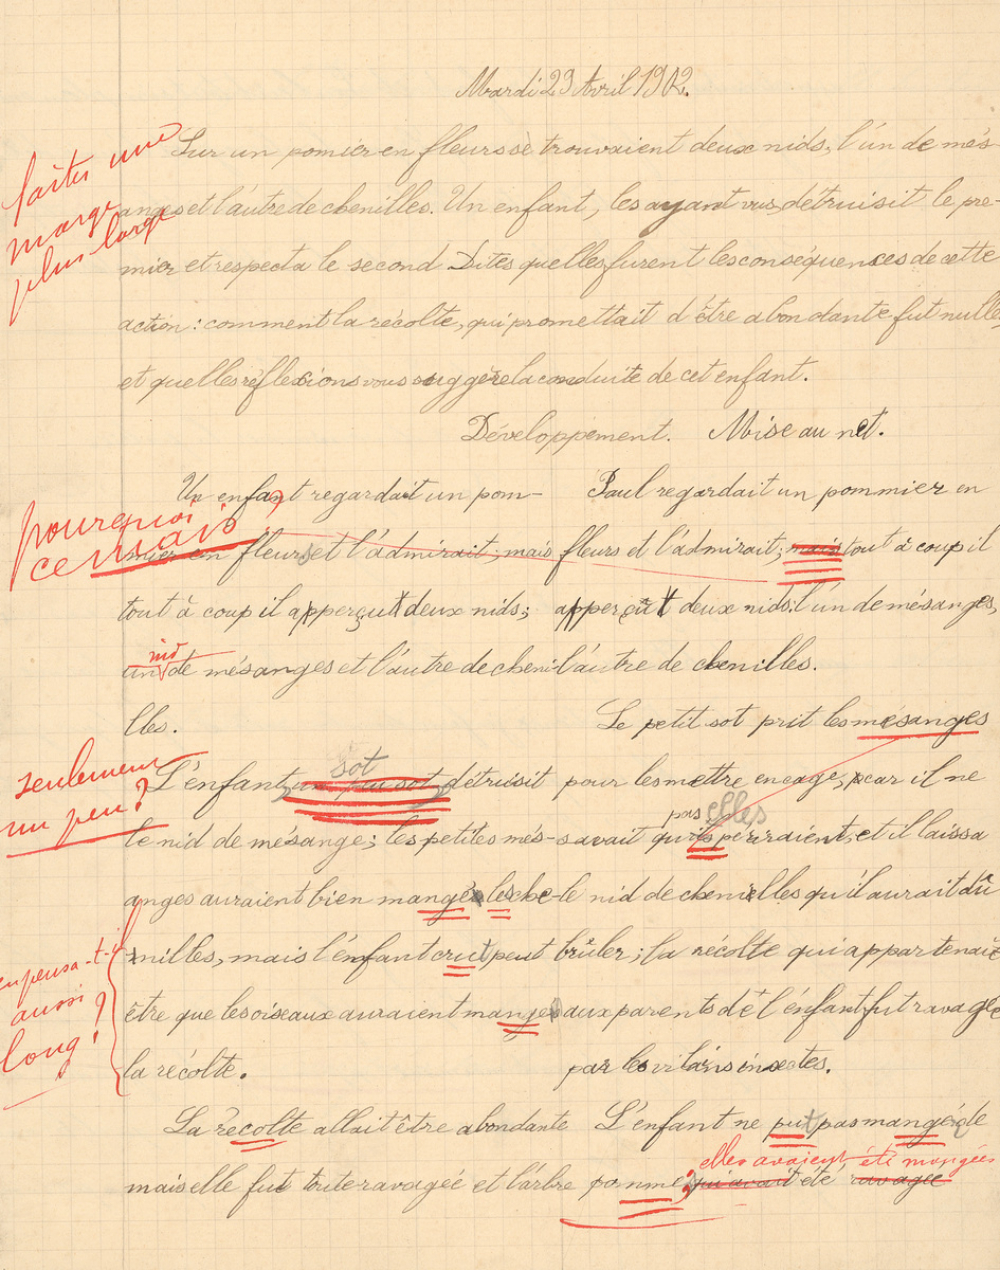 Mardi 29 Avril 1902.
faites une
marge
plus large
Sur un pomier en fleurs se trouvaient deux nids, l'un de més-
anges et l'autre de chenilles. Un enfant, les ayant vus, détruisit le pre-
mier et respecta le second Dites quelles furent les conséquences de cette
action : comment la récolte, qui promettait d'être abondante fut nulle,
et quelles réflexions vous suggère la conduite de cet enfant.
Développement. Mise au net.
pourquoi
ce mais ?
Un enfant regardait un pom-
mier en fleurs et l'admirait; mais
tout à coup il apperçut deux nids;
nid
un de mésanges et l'autre de cheni-
lles.
seulement
un peu ?
sot
L'enfant, un peu sot, détruisit
le nid de mésange; les petites més-
anges auraient bien mangé les che-
nilles, mais l'enfant crut peut
être que les oiseaux auraient mangé
la récolte.
en pensa-t-il
aussi
long ?
La récolte allait être abondante
mais elle fut toute ravagée et l'arbre
Paul regardait un pommier en
fleurs et l'admirait; mais tout à coup il
apperçut deux nids: l'un de mésanges,
l'autre de chenilles.
Le petit sot prit les mésanges
pour les mettre en cage, car il ne
pas elles
savait qu'ils periraient, et il laissa
le nid de chenilles qu'il aurait dû
brûler ; la récolte qui appartenait
aux parents de l'enfant fut ravagée
par les vilains insectes.
L'enfant ne put pas mangér de
elles avaient été mangées
pomme, qui avait été ravagée